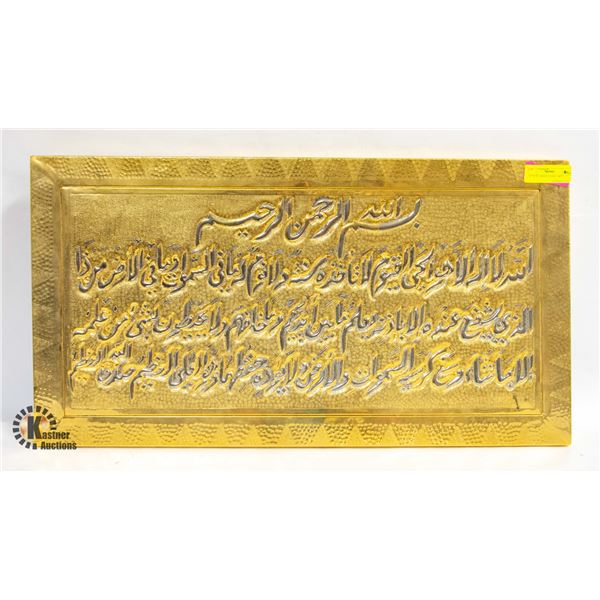 بسم الله الرحمن الرحيم
الله لا اله الا هو الحي القيوم لا تاخذه سنة ولا نوم له ما في السموات وما في الارض من ذا
الذي يشفع عنده الا باذنه يعلم ما بين ايديهم وما خلفهم ولا يحيطون بشئ من علمه
الا بما شاء وسع كرسيه السموات والارض ولا يؤده حفظهما وهو العلي العظيم صدق الله العظيم
Kastner
Auctions